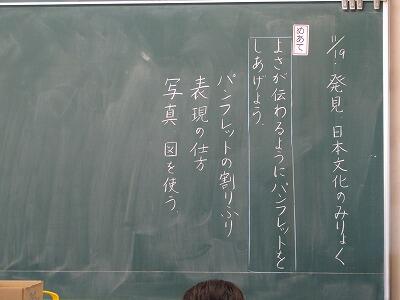 11/19. 発見 日本文化のみりょく
めあて
よさが伝わるようにパンフレットを
しあげよう。
パンフレットの割りふり
表現の仕方
写真 図を使う。